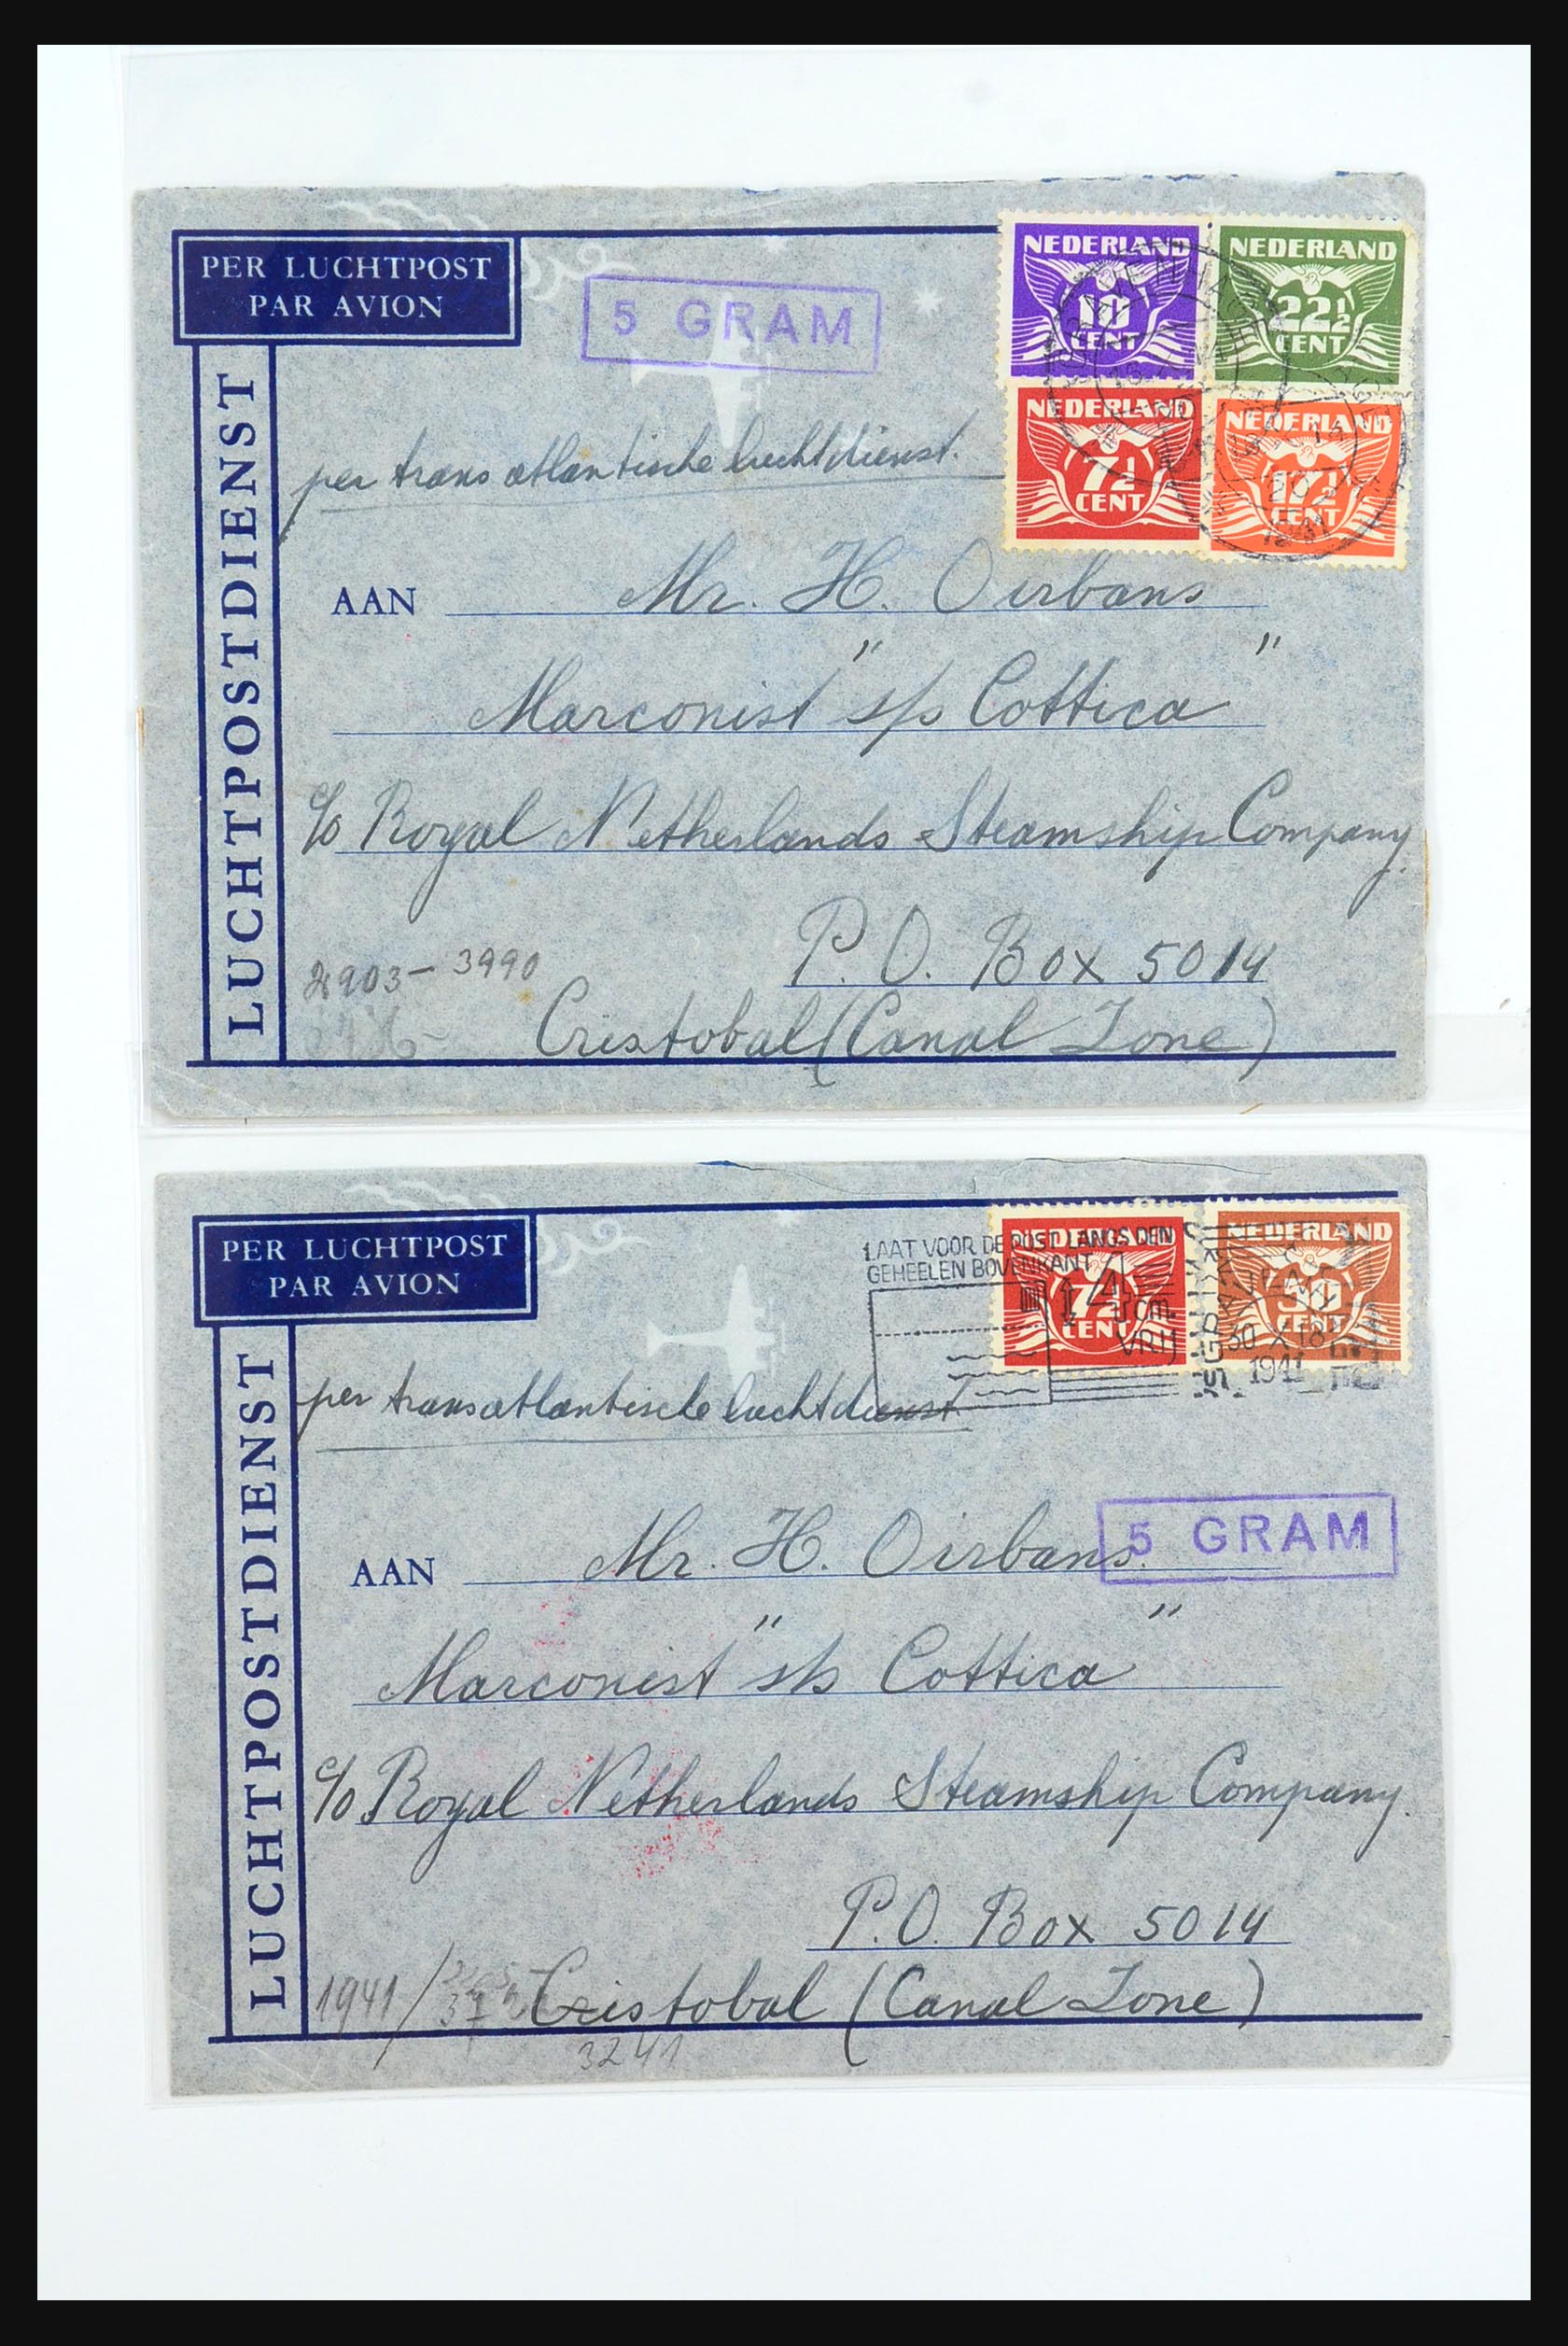 PER LUCHTPOST
PAR AVION
LUCHTPOSTDIENST
5 GRAM
NEDERLAND
10
CENT
NEDERLAND
22½
CENT
NEDERLAND
7½
CENT
NEDERLAND
17½
CENT
per trans atlantische luchtdienst.
AAN Mr. H. Oirbans
Marconist "s/s Cottica"
c/o Royal Netherlands Steamship Company.
P.O. Box 5014
3990
Cristobal (Canal Zone)
PER LUCHTPOST
PAR AVION
LUCHTPOSTDIENST
LAAT VOOR DE POST LANGS DEN
GEHEELEN BOVENKANT
4 cm.
VRIJ
NEDERLAND
7½
CENT
NEDERLAND
30
CENT
30 X 18
1941
per transatlantische luchtdienst
5 GRAM
AAN Mr. H. Oirbans.
Marconist "s/s Cottica"
c/o Royal Netherlands Steamship Company.
P.O. Box 5014
1941/
Cristobal (Canal Zone)
3241